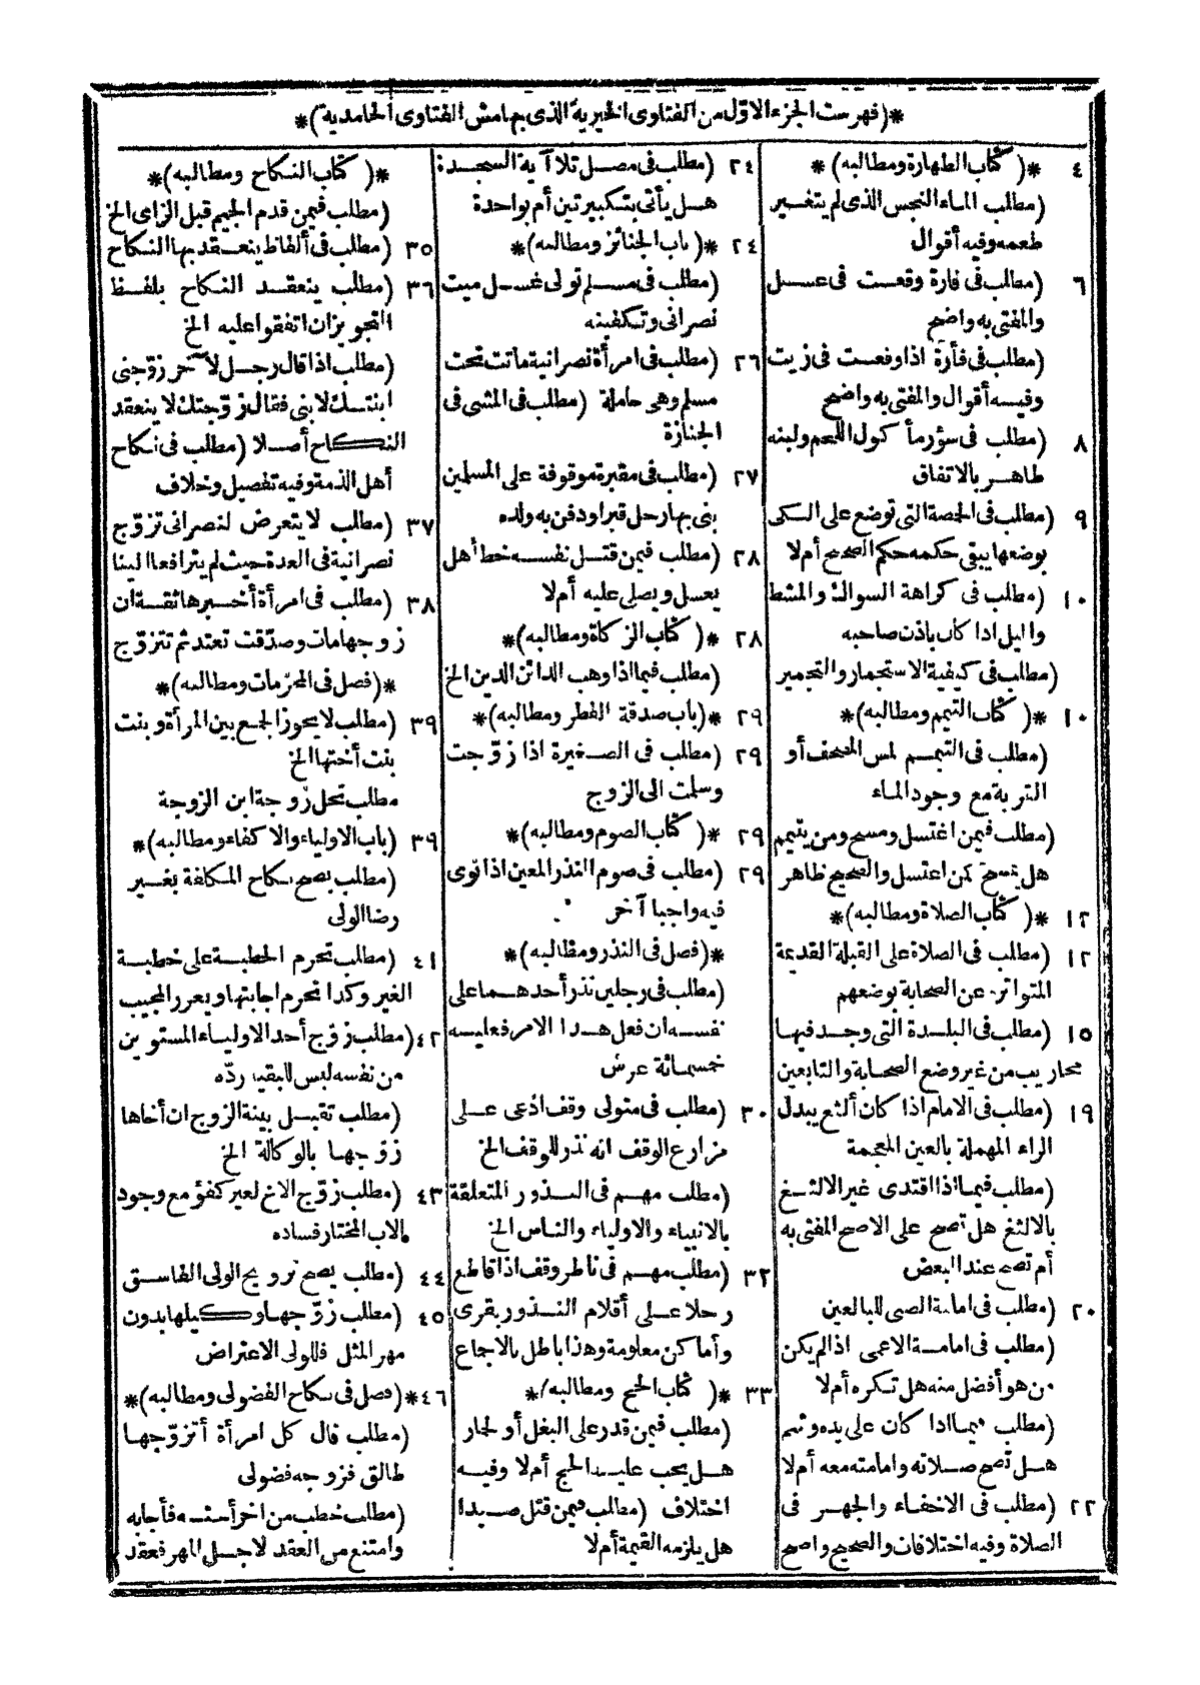 *(فهرست الجزء الاوّل من الفتاوى الخيرية الذى بهامش الفتاوى الحامدية)*
٤ *(كتاب الطهارة ومطالبه)*
(مطلب الماء النجس الذى لم يتغير
طعمه وفيه أقوال
٦ (مطلب فى فارة وقعت فى عسل
والمفتى به واضح
(مطلب فى فأرة اذا وقعت فى زيت
وفيه أقوال والمفتى به واضح
٨ (مطلب فى سؤر مأكول اللحم ولبنه
طاهر بالاتفاق
٩ (مطلب فى الحصة التى توضع على الكى
بوضعها يبقى حكمه حكم الصحيح أم لا
١٠ (مطلب فى كراهة السواك والمشط
والليل اذا كان باذن صاحبه
(مطلب فى كيفية الاستجمار والتجمير
١٠ *(كتاب التيمم ومطالبه)*
(مطلب فى التيمم لمس المصحف أو
التربة مع وجود الماء
(مطلب فيمن اغتسل ومسح ومن يتيمم
هل يصح كمن اغتسل والصحيح ظاهر
١٢ *(كتاب الصلاة ومطالبه)*
١٢ (مطلب فى الصلاة على القبلة القديمة
المتواتر عن الصحابة بوضعهم
١٥ (مطلب فى البلدة التى وجد فيها
محاريب من غير وضع الصحابة والتابعين
١٩ (مطلب فى الامام اذا كان ألثغ يبدل
الراء المهملة بالغين المعجمة
(مطلب فيما اذا اقتدى غير الالثغ
بالالثغ هل تصح على الاصح المفتى به
أم تصح عند البعض
٢٠ (مطلب فى امامة الصبى للبالغين
(مطلب فى امامة الاعمى اذا لم يكن
من هو أفضل منه هل تكره أم لا
(مطلب فيما اذا كان على يده وشم
هل تصح صلاته وامامته معه أم لا
٢٢ (مطلب فى الاخفاء والجهر فى
الصلاة وفيه اختلافات والصحيح واضح
٢٤ (مطلب فى مصل تلا آية السجدة
هل يأتى بتكبيرتين أم بواحدة
٢٤ *(باب الجنائز ومطالبه)*
(مطلب فى مسلم تولى غسل ميت
نصرانى وتكفينه
٢٦ (مطلب فى امرأة نصرانية ماتت تحت
مسلم وهى حاملة (مطلب فى المشى فى
الجنازة
٢٧ (مطلب فى مقبرة موقوفة على المسلمين
بنى بها رجل قبرا ودفن به ولده
٢٨ (مطلب فيمن قتل نفسه خطأ هل
يغسل ويصلى عليه أم لا
٢٨ *(كتاب الزكاة ومطالبه)*
(مطلب فيما اذا وهب الدائن الدين الخ
٢٩ *(باب صدقة الفطر ومطالبه)*
٢٩ (مطلب فى الصغيرة اذا زوّجت
وسلمت الى الزوج
٢٩ *(كتاب الصوم ومطالبه)*
٢٩ (مطلب فى صوم النذر المعين اذا نوى
فيه واجبا آخر
*(فصل فى النذر ومطالبه)*
(مطلب فى رجلين نذر أحدهما على
نفسه ان فعل هذا الامر فعليه
خمسمائة عرش
٣٠ (مطلب فى متولى وقف ادّعى على
مزارع الوقف انه نذر للوقف الخ
(مطلب مهم فى النذور المتعلقة
بالانبياء والاولياء والناس الخ
٣٢ (مطلب مهم فى ناظر وقف اذا قاطع
رجلا على أقلام النذور بقرى
وأماكن معلومة وهذا باطل بالاجماع
٣٣ *(كتاب الحج ومطالبه)*
(مطلب فيمن قدر على البغل أو الحمار
هل يجب عليه الحج أم لا وفيه
اختلاف (مطلب فيمن قتل صيدا
هل يلزمه القيمة أم لا
*(كتاب النكاح ومطالبه)*
(مطلب فيمن قدم الجيم قبل الزاى الخ
٣٥ (مطلب فى ألفاظ ينعقد بها النكاح
٣٦ (مطلب ينعقد النكاح بلفظ
التجويز ان اتفقوا عليه الخ
(مطلب اذا قال رجل لآخر زوّجنى
ابنتك لابنى فقال زوّجتك لا ينعقد
النكاح أصلا (مطلب فى نكاح
أهل الذمة وفيه تفصيل وخلاف
٣٧ (مطلب لا يتعرض لنصرانى تزوّج
نصرانية فى العدة حيث لم يترافعا الينا
٣٨ (مطلب فى امرأة أخبرها ثقة ان
زوجها مات وصدّقت تعتد ثم تتزوّج
*(فصل فى المحرّمات ومطالبه)*
٣٩ (مطلب لا يجوز الجمع بين المرأة وبنت
بنت أختها الخ
مطلب تحل زوجة ابن الزوجة
٣٩ (باب الاولياء والاكفاء ومطالبه)*
(مطلب يصح نكاح المكافة بغير
رضا الولى
٤١ (مطلب تحرم الخطبة على خطبة
الغير وكذا تحرم اجابتها ويعزر المجيب
٤٢ (مطلب زوّج أحد الاولياء المستوين
من نفسه ليس للبقية ردّه
(مطلب تقبل بينة الزوج ان أخاها
زوّجها بالوكالة الخ
٤٣ (مطلب زوّج الاخ لغير كفؤ مع وجود
الاب المختار فساده
٤٤ (مطلب يصح تزويج الولى الفاسق
٤٥ (مطلب زوّجها وكيلها بدون
مهر المثل فللولى الاعتراض
٤٦ *(فصل فى نكاح الفضولى ومطالبه)*
(مطلب قال كل امرأة أتزوّجها
طالق فزوجه فضولى
(مطلب خطب من اخر أخته فأجابه
وامتنع من العقد لاجل المهر فعقد